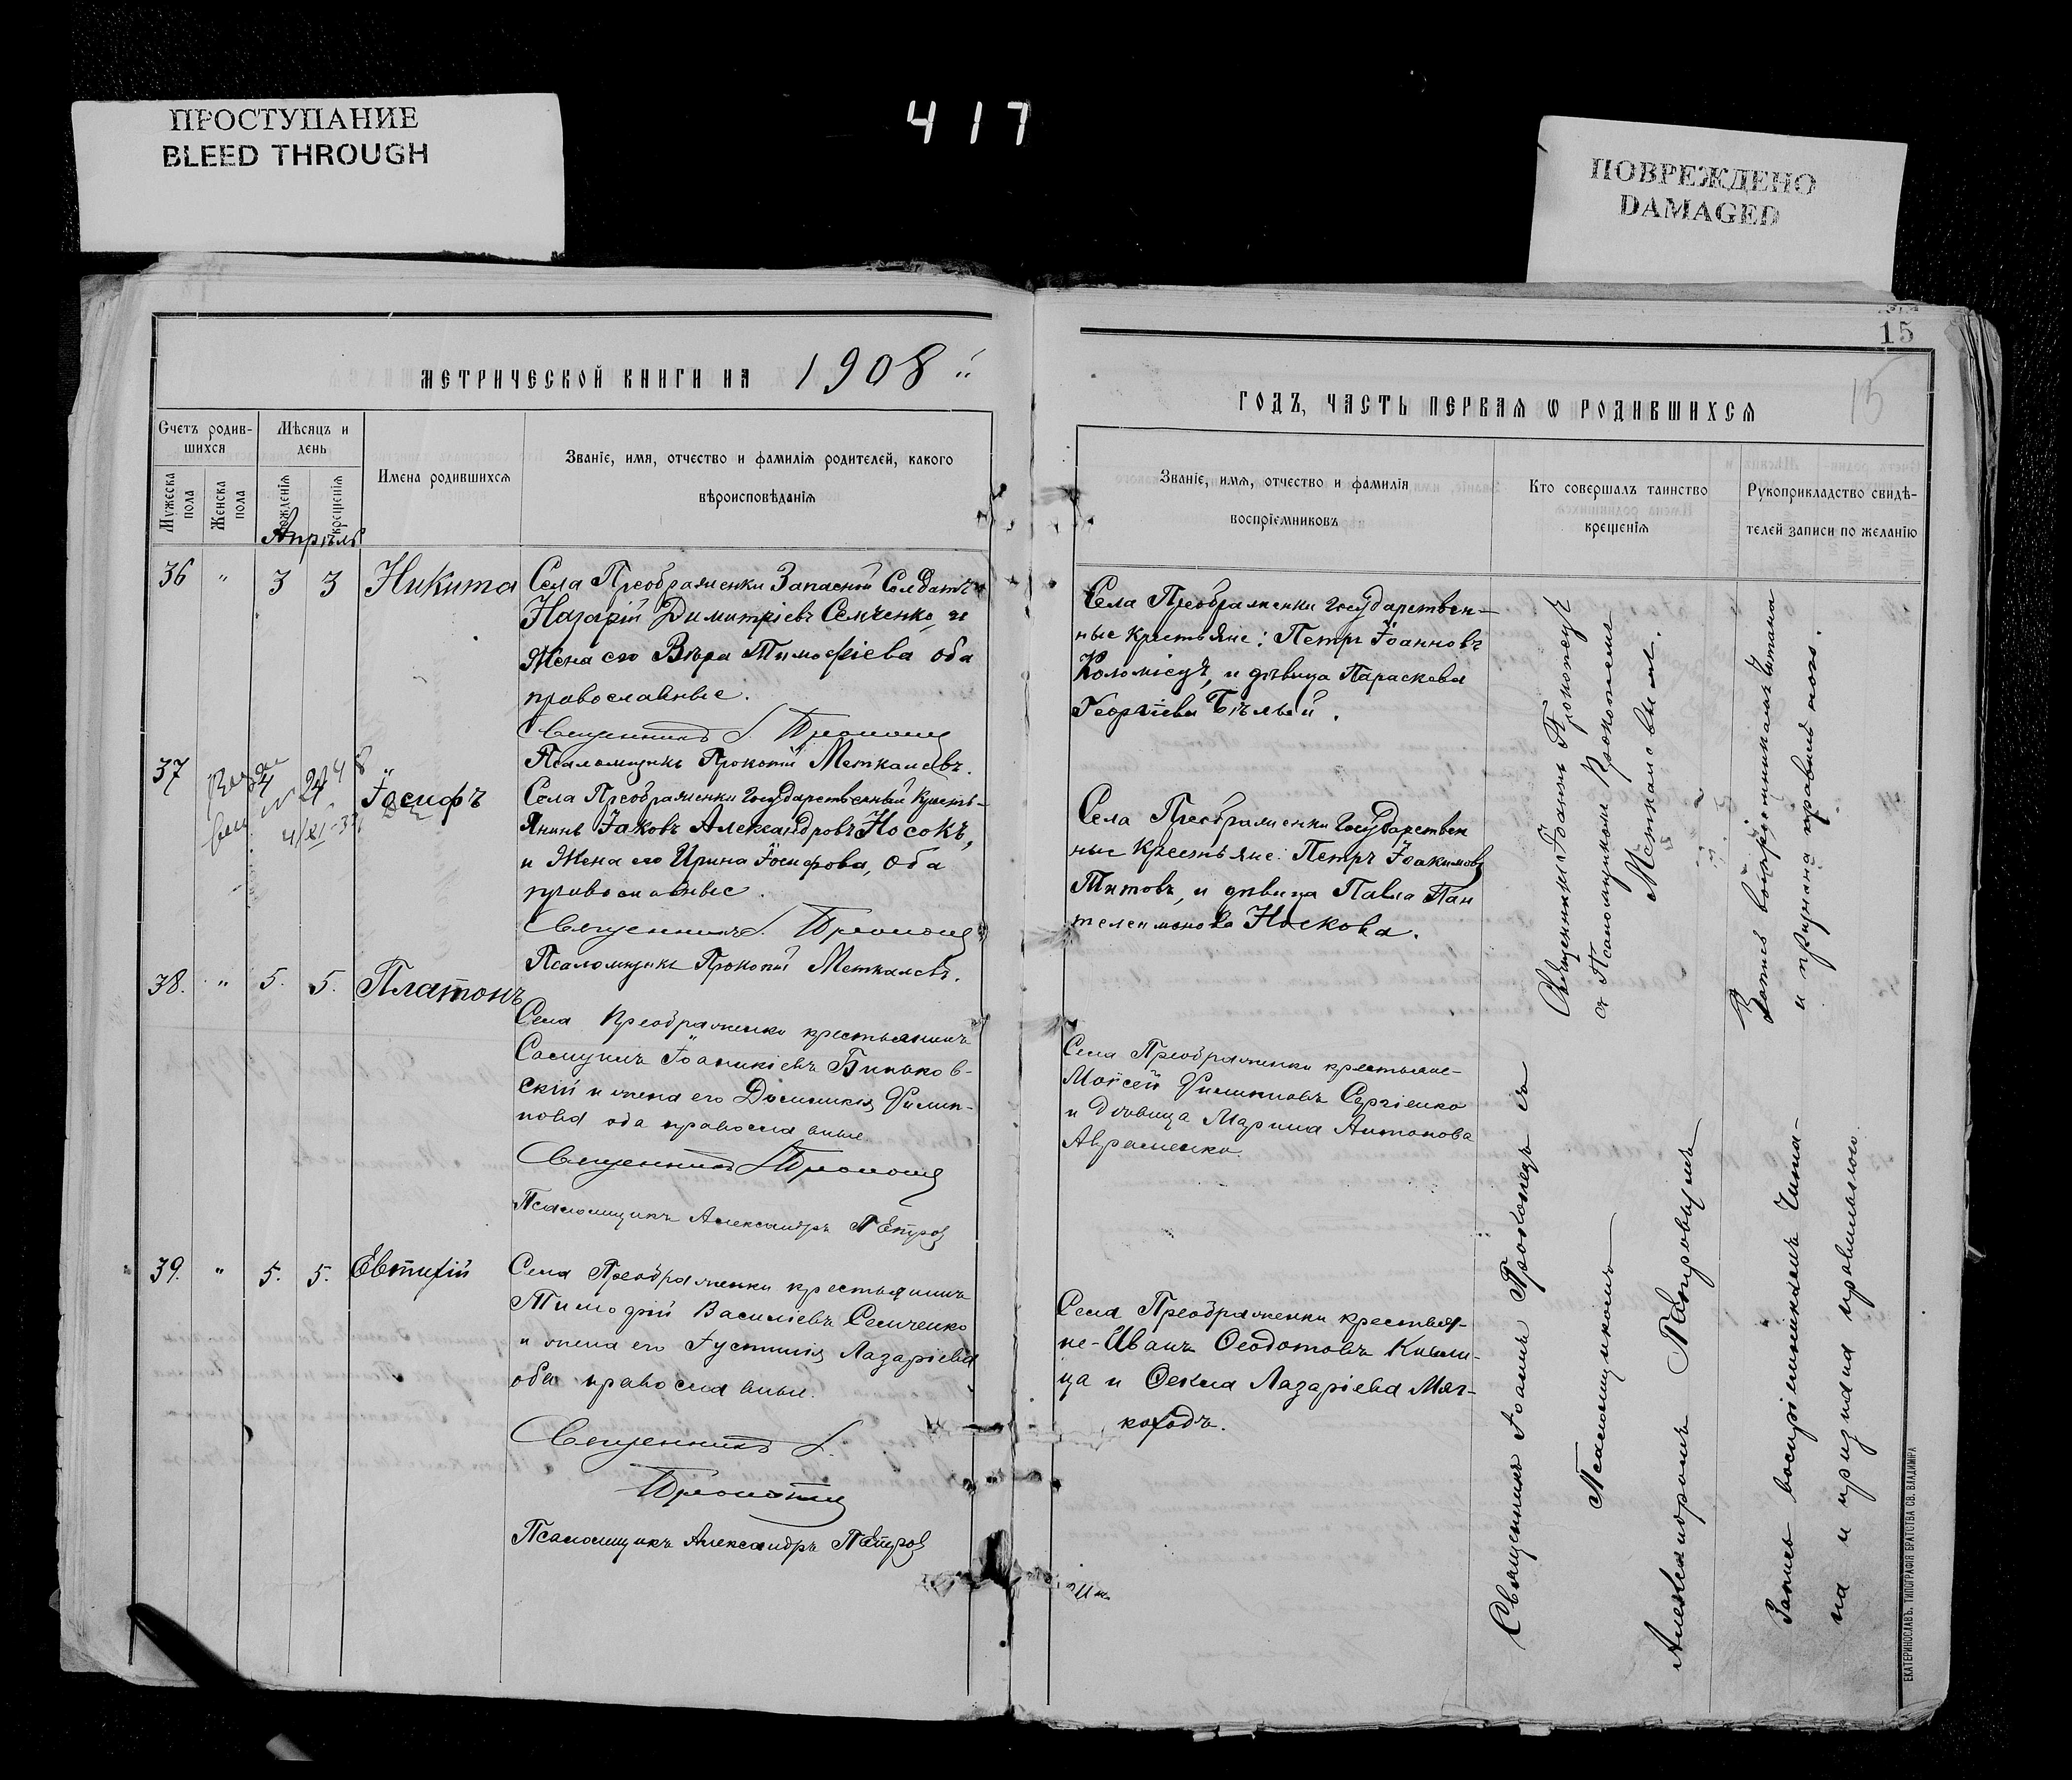 ПРОСТУПАНИЕ
BLEED THROUGH
417
ПОВРЕЖДЕНО
DAMAGED
МЕТРИЧЕСКОЙ КНИГИ НА 1908
Счетъ родив-
шихся
Мѣсяцъ и
день
Мужеска
пола
Женска
пола
рожденія
крещенія
Имена родившихся
Званіе, имя, отчество и фамилія родителей, какого
вѣроисповѣданія
Апрѣль
36 " 3 3 Никита
Села Преображенки Запасной Солдатъ
Назарій Димитріевъ Семченко и
Жена его Вѣра Тимофіева оба
православные.
Священникъ І. Прокопец
Псаломщикъ Прокопій Меткалевъ.
37
4/XI-37
Іосифъ
Села Преображенки Государственный Кресть-
янинъ Іаковъ Александровъ Носокъ,
и Жена его Ирина Іосифова, оба
православные.
Священникъ І. Прокопец
Псаломщикъ Прокопій Меткалевъ.
38. " 5. 5. Платонъ
Села Преображенки крестьянинъ
Самуилъ Іоаникіевъ Биньков-
скій и жена его Домникія Филип-
пова оба православные
Священникъ І. Прокопец
Псаломщикъ Александръ Петров
39. " 5. 5. Евтихій
Села Преображенки крестьянинъ
Тимофій Василіевъ Семченко
и жена его Іустинія Лазаріева
оба православные.
Священникъ І.
Прокопец
Псаломщикъ Александръ Петров
15
15
ГОДЪ, ЧАСТЬ ПЕРВАЯ Ѡ РОДИВШИХСЯ
Званіе, имя, отчество и фамилія
воспріемниковъ
Кто совершалъ таинство
крещенія
Рукоприкладство свидѣ-
телей записи по желанію
Села Преображенки Государствен-
ные крестьяне: Петръ Іоанновъ
Коломіецъ, и дѣвица Параскева
Георгіева Бѣлый.
Села Преображенки Государствен
ные Крестьяне: Петръ Іоакимовъ
Титовъ, и дѣвица Павла Пан
телеимонова Носкова.
Села Преображенки крестьяне-
Моисей Филипповъ Сергіенко
и дѣвица Марина Антонова
Авраменко.
Села Преображенки крестья-
не-Иванъ Ѳеодотовъ Кисли-
ца и Ѳекла Лазаріева Мяг-
коходъ.
Священникъ Іоаннъ Прокопецъ
съ Псаломщикомъ Прокопіемъ
Меткалевымъ.
Священникъ Іоаннъ Прокопецъ съ
Псаломщикомъ
Александромъ Петровымъ
воспріемникамъ читана
и признана правильною.
Запись воспріемникамъ чита-
на и признана правильною.
ЕКАТЕРИНОСЛАВЪ. ТИПОГРАФІЯ БРАТСТВА СВ. ВЛАДИМІРА